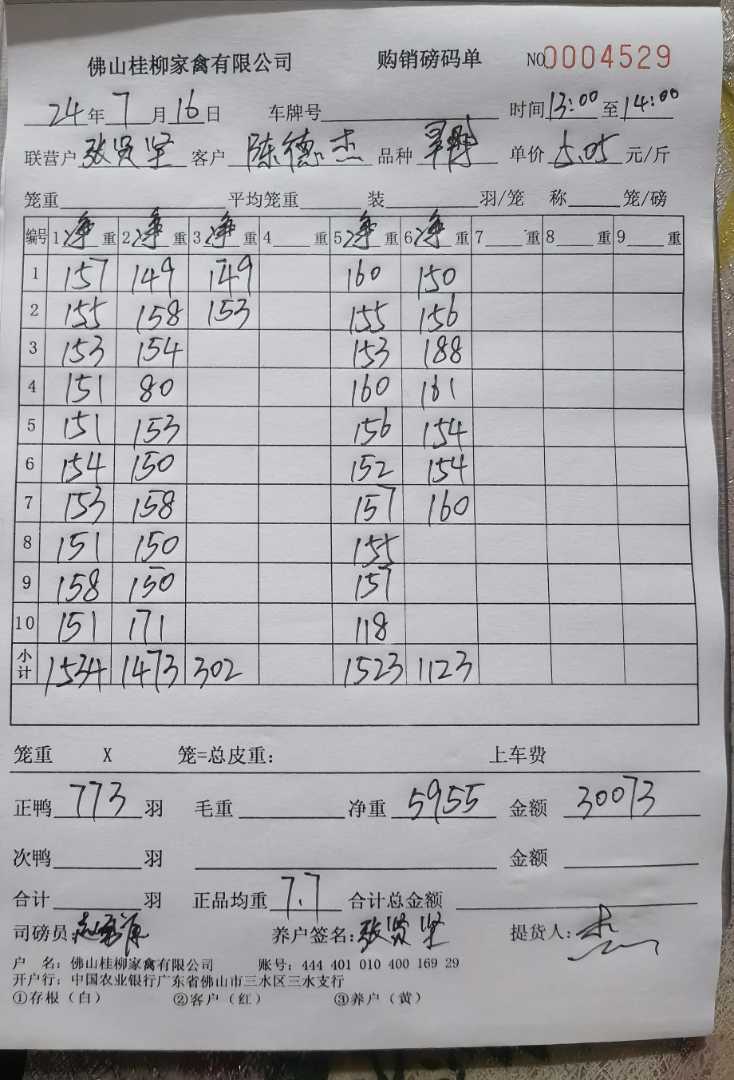 佛山桂柳家禽有限公司 购销磅码单 NO.0004529
24年7月16日 车牌号 时间13:00至14:00
联营户 张贤坚 客户 陈德杰 品种 单价 5.05 元/斤
笼重 平均笼重 装 羽/笼 称 笼/磅
编号 1净重 2净重 3净重 4 重 5净重 6净重 7 重 8 重 9 重
1 157 149 149 160 150
2 155 158 153 155 156
3 153 154 153 188
4 151 80 160 161
5 151 153 156 154
6 154 150 152 154
7 153 158 157 160
8 151 150 155
9 158 150 157
10 151 171 118
小计 1534 1473 302 1523 1123
笼重 X 笼=总皮重: 上车费
正鸭 773 羽 毛重 净重 5955 金额 30073
次鸭 羽 金额
合计 羽 正品均重 7.7 合计总金额
司磅员: 养户签名: 张贤坚 提货人: 杰
户 名: 佛山桂柳家禽有限公司 账号: 444 401 010 400 169 29
开户行: 中国农业银行广东省佛山市三水区三水支行
①存根（白） ②客户（红） ③养户（黄）